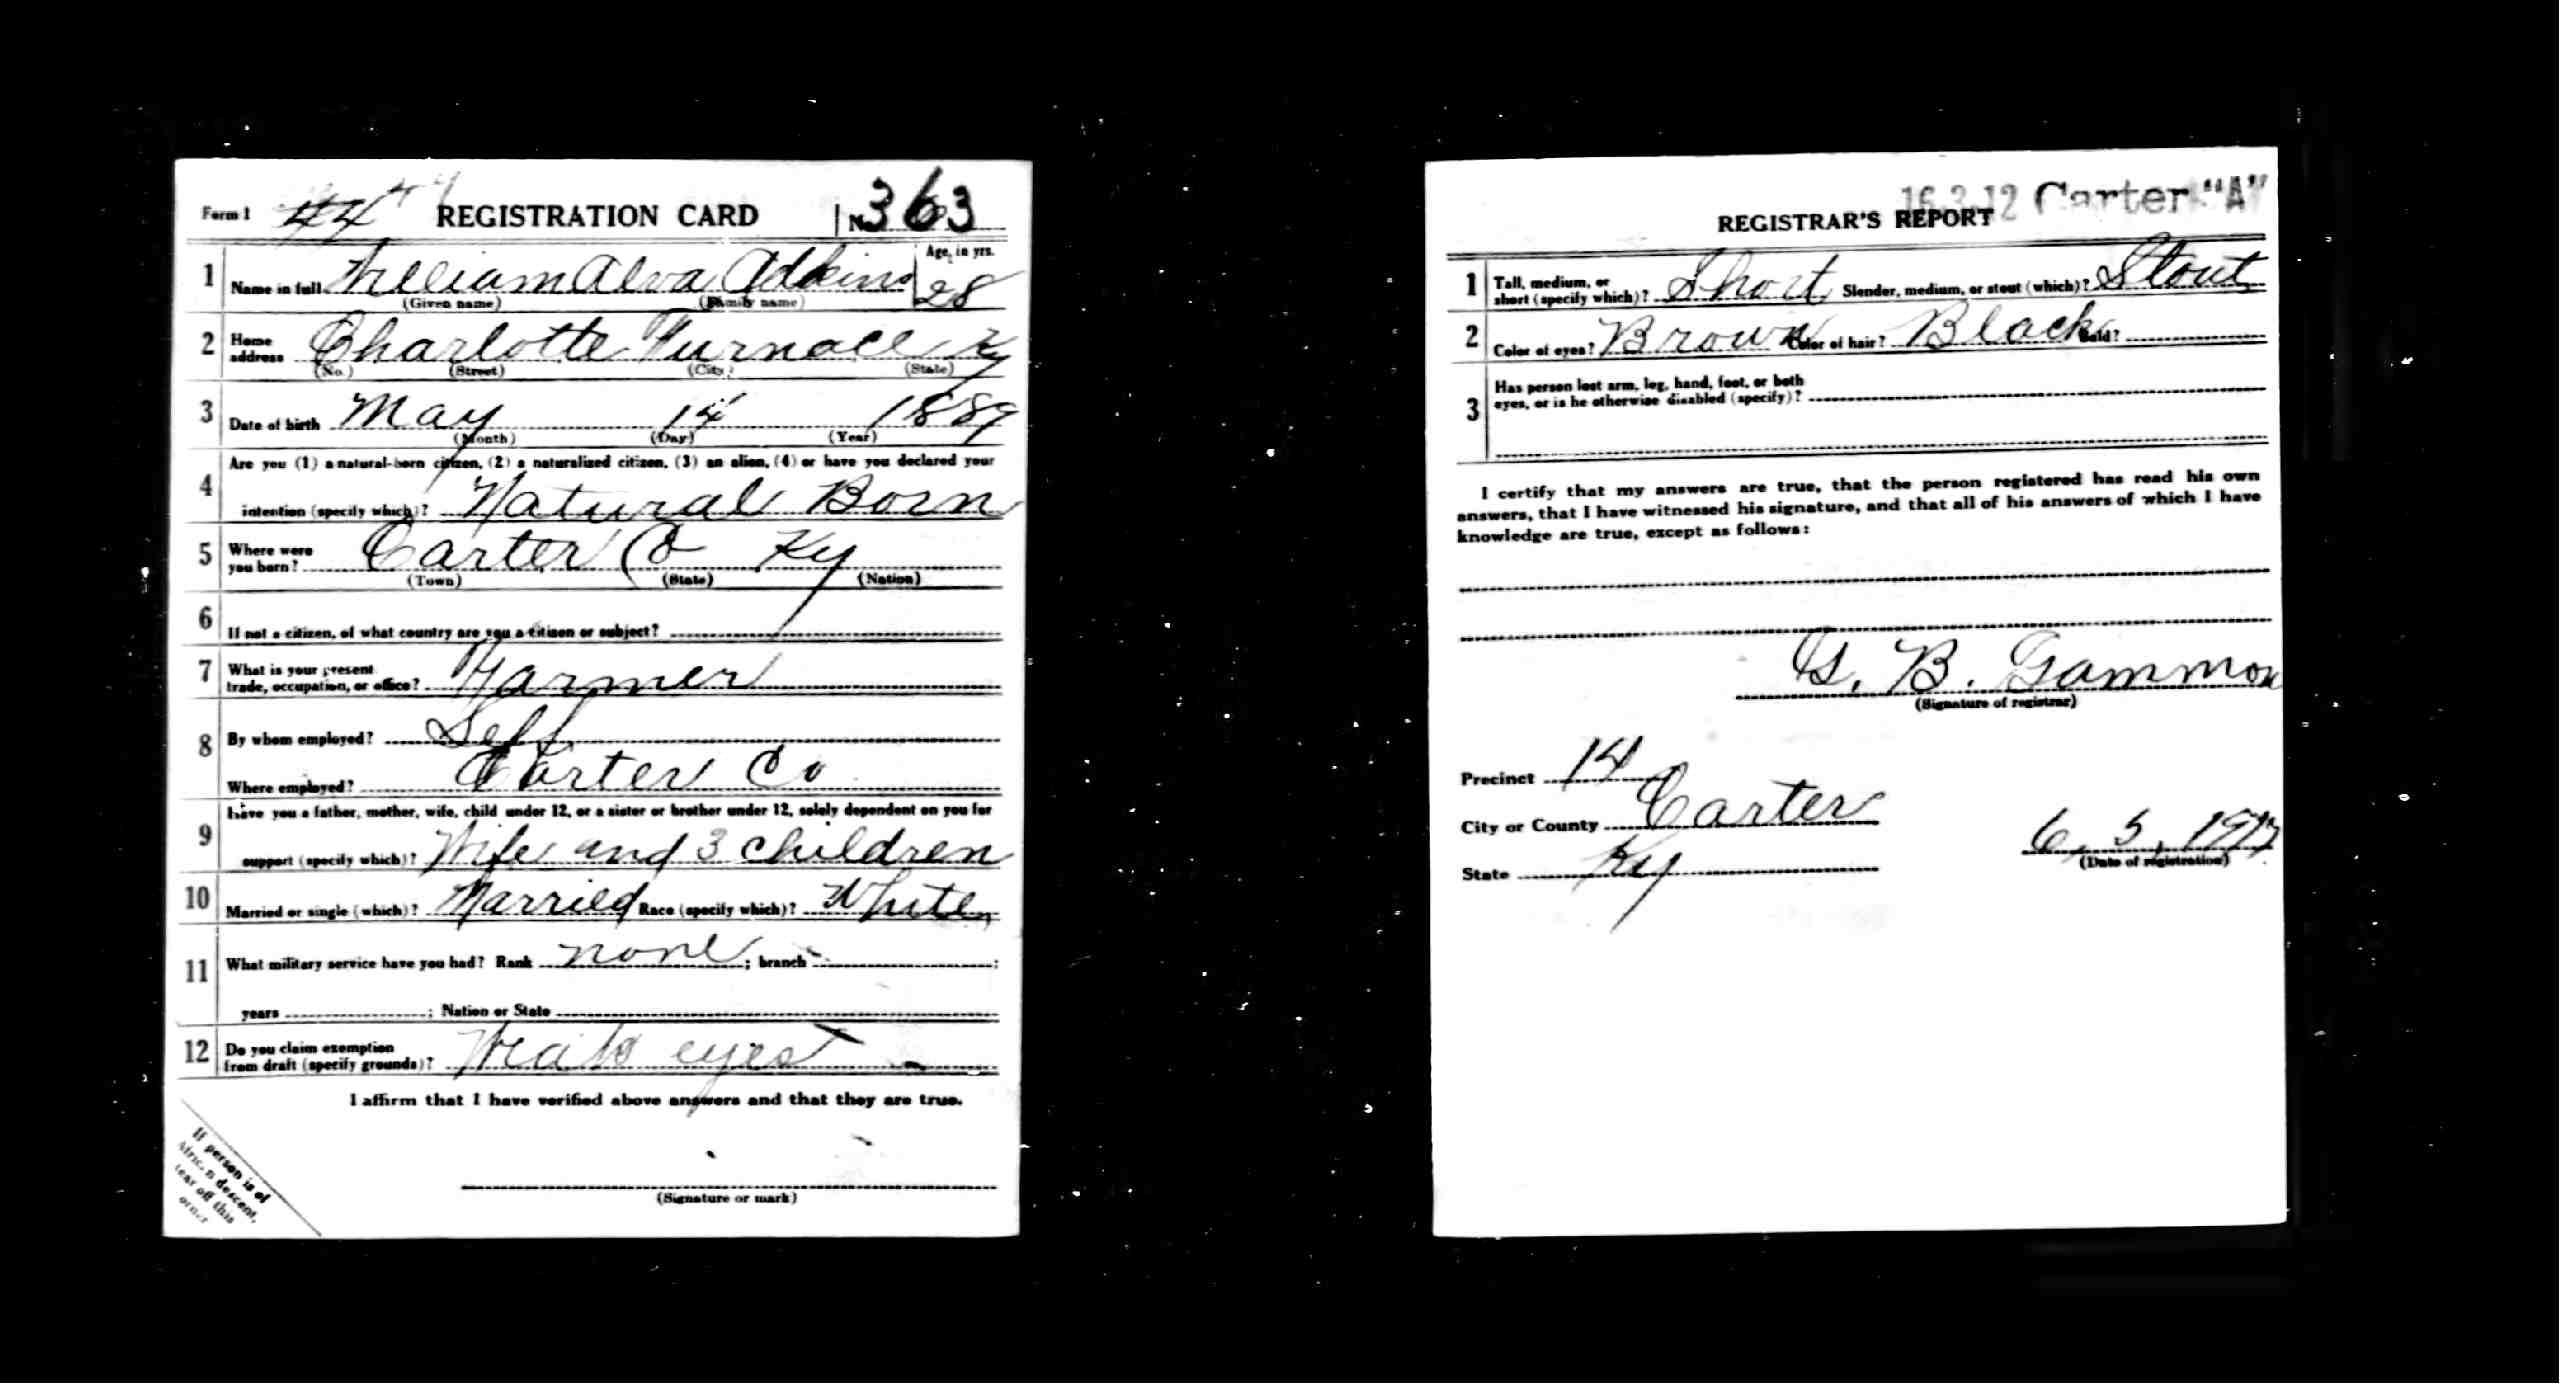 Form 1 44 REGISTRATION CARD No. 363
1 Name in full William Alva Adkins Age, in yrs. 28
(Given name) (Family name)
2 Home address Charlotte Furnace Ky
(No.) (Street) (City) (State)
3 Date of birth May 14 1889
(Month) (Day) (Year)
4 Are you (1) a natural-born citizen, (2) a naturalized citizen, (3) an alien, (4) or have you declared your
intention (specify which)? Natural Born
5 Where were you born? Carter Co Ky
(Town) (State) (Nation)
6 If not a citizen, of what country are you a citizen or subject?
7 What is your present trade, occupation, or office? Farmer
8 By whom employed? Self
Where employed? Carter Co
9 Have you a father, mother, wife, child under 12, or a sister or brother under 12, solely dependent on you for
support (specify which)? Wife and 3 children
10 Married or single (which)? Married Race (specify which)? White
11 What military service have you had? Rank none ; branch ;
years ; Nation or State
12 Do you claim exemption from draft (specify grounds)? Weak eyes
I affirm that I have verified above answers and that they are true.
(Signature or mark)
If person is of
African descent,
tear off this
corner
16-3-12 Carter "A"
REGISTRAR'S REPORT
1 Tall, medium, or short (specify which)? Short Slender, medium, or stout (which)? Stout
2 Color of eyes? Brown Color of hair? Black Bald?
3 Has person lost arm, leg, hand, foot, or both
eyes, or is he otherwise disabled (specify)?
I certify that my answers are true, that the person registered has read his own
answers, that I have witnessed his signature, and that all of his answers of which I have
knowledge are true, except as follows:
G. B. Gammon
(Signature of registrar)
Precinct 14
City or County Carter
State Ky
6, 5, 1917
(Date of registration)